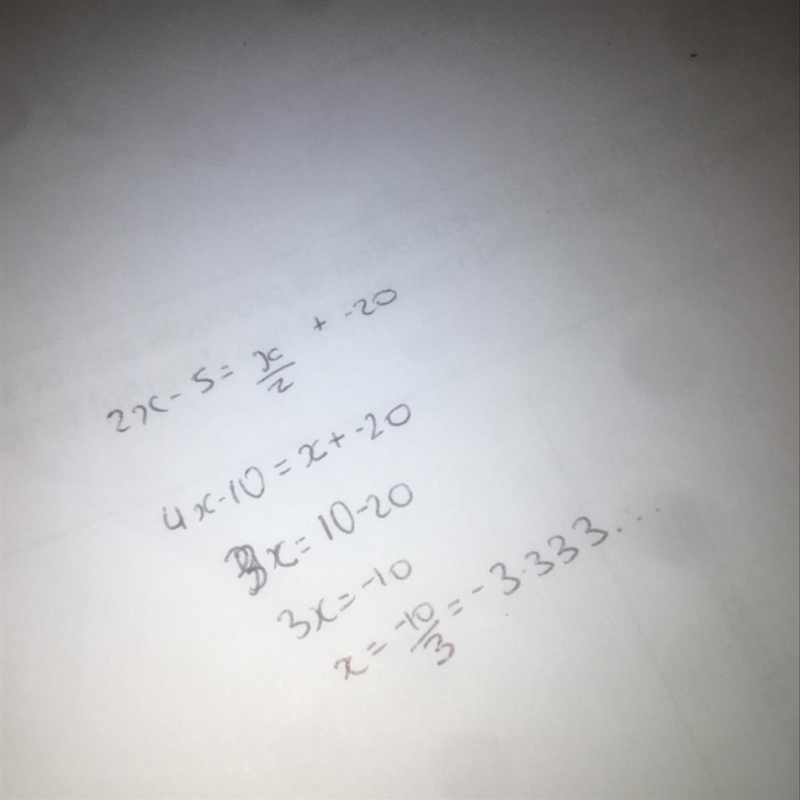 2x - 5 = x/2 + -20
4x - 10 = x + -20
3x = 10 - 20
3x = -10
x = -10/3 = -3.333...